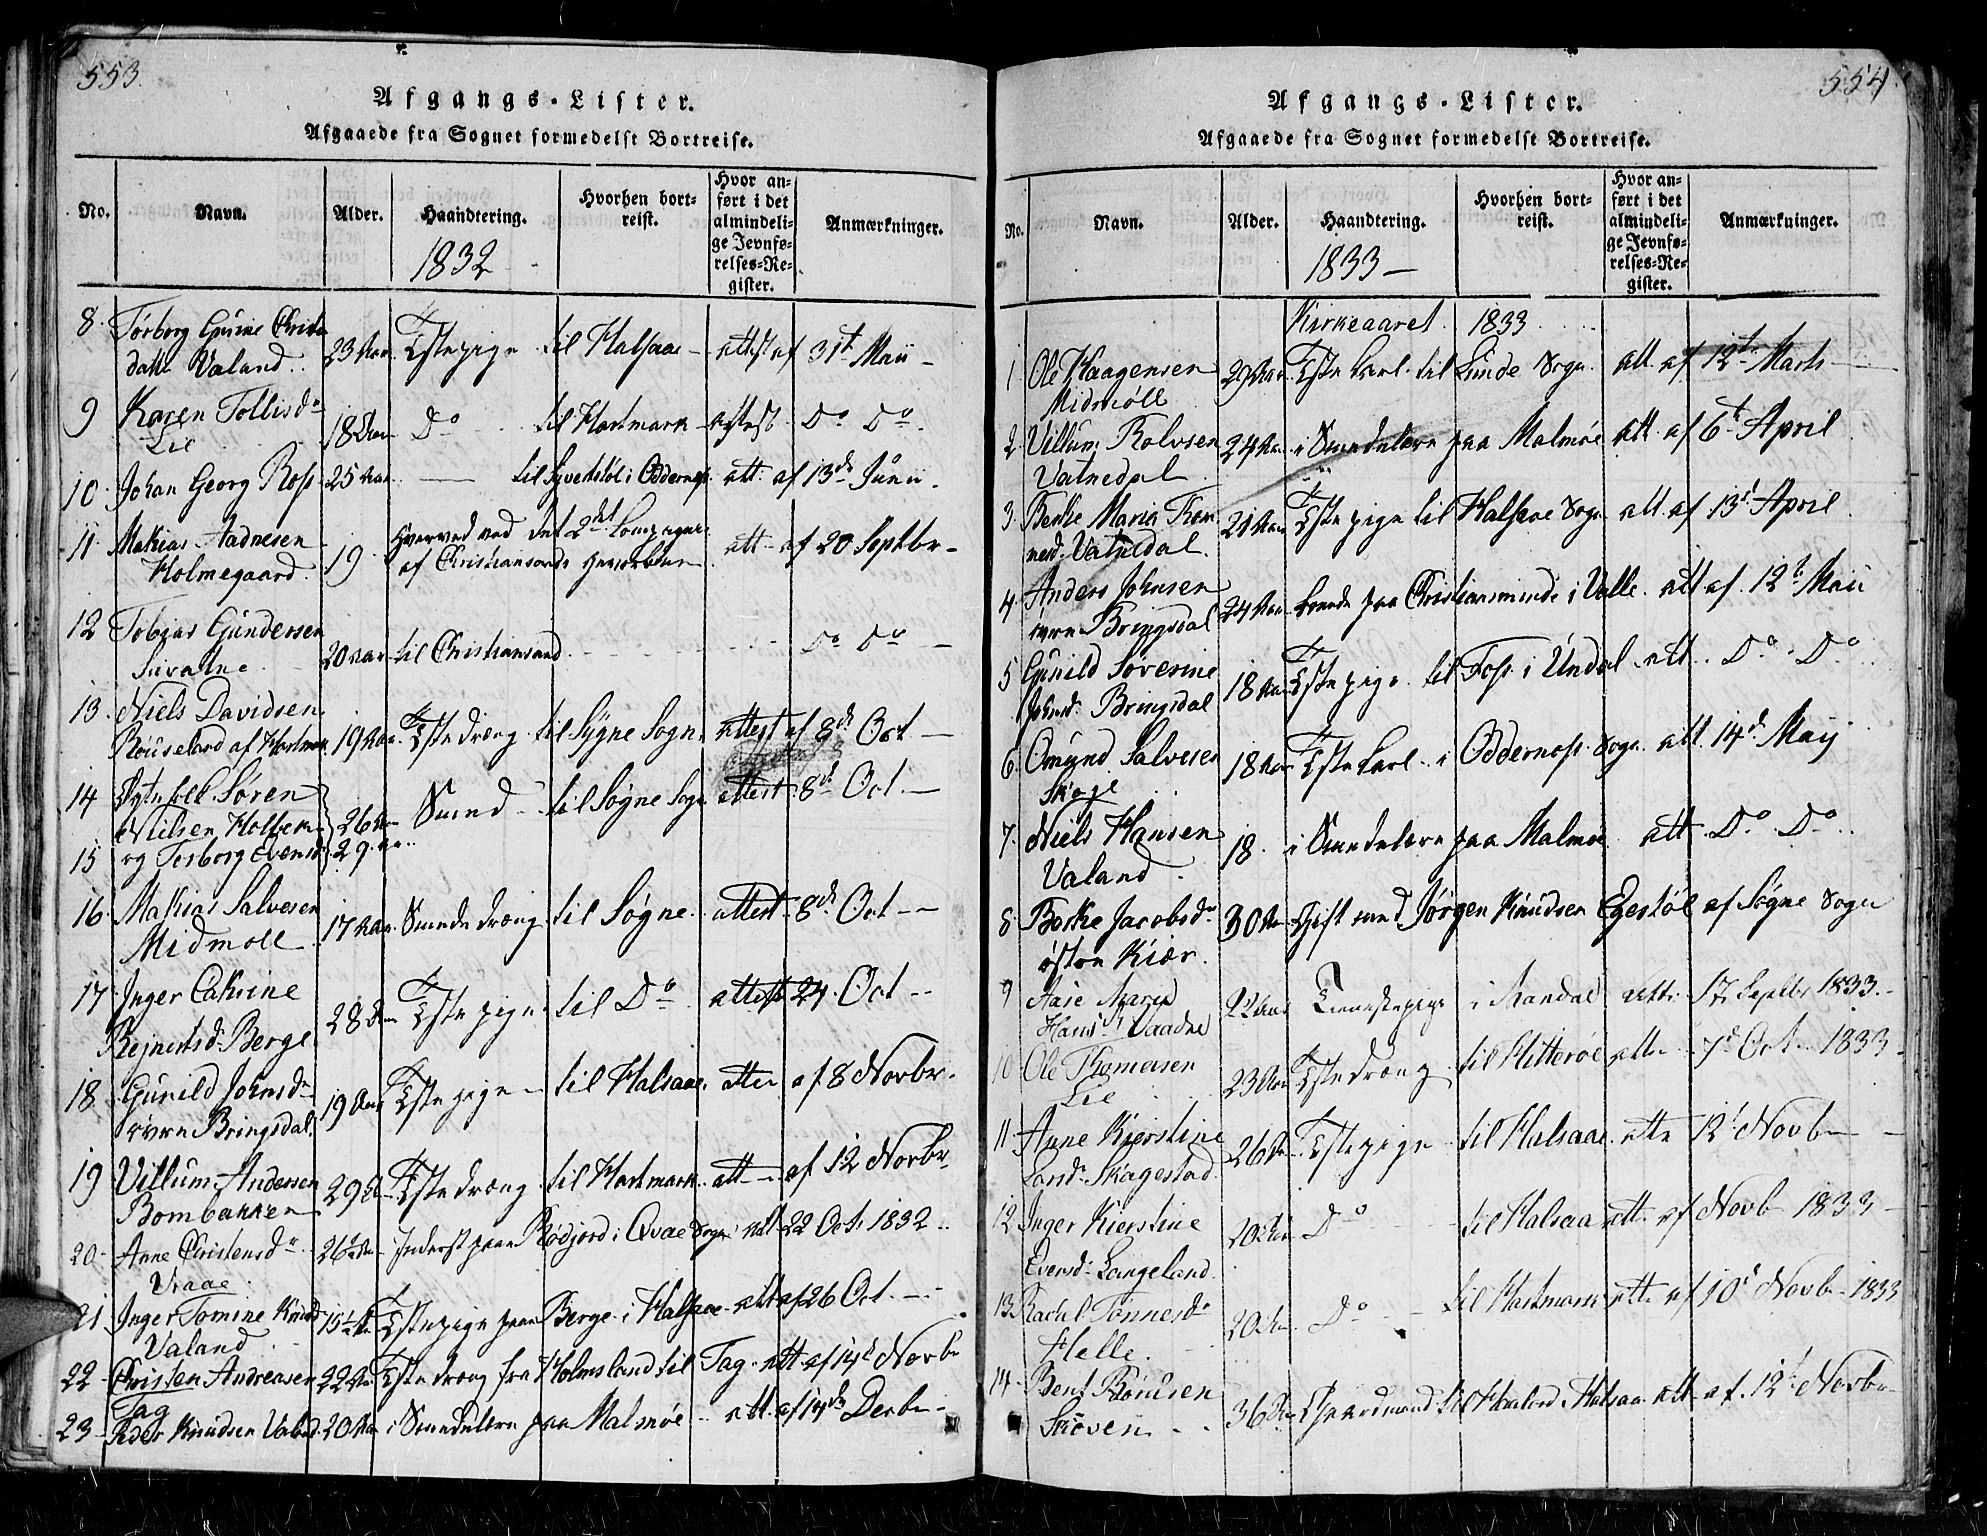 553.
Afgangs-Lister.
Afgaaede fra Sognet formedelst Bortreise.
No. Navn. Alder. Haandtering. Hvorhen bortreist. Hvor anført i det almindelige Jevnførelses-Register. Anmærkninger.
1832
8. Torborg Gurine Christ
datt. Valand. 23 Aar. Tjstepige til Halsaae attest af 31t Maii
9 Karen Tollisdr
Lie 18 Aar Do til Hartmark attest Do Do
10. Johan Georg Ross 25 Aar til i Oddernæs att. af 13de Junii.
11. Mathias Aadnesen
Holmegaard. 19 Hverved ved det 2det Compagnie
af Christiansands att. af 20 Septbr
12 Tobias Gundersen
20 Aar til Christiansand Do Do
13. Niels Davidsen
af Hartmark 19 Aar. Tjstedræng til Sygne Sogn. attest af 8de Oct.
14 Søren
Nilsen 26 Smed til Søgne Sogn attest 8de Oct.
15 og Torborg 29
16. Mathias Salvesen
Midmoll 17 Aar. Smededræng til Søgne. attest 8de Oct
17. Inger Cathrine
Rejnertsd. Berge. 28 Tjstepige til Do attest 24. Oct
18 Gunild Johnsdr
øvre Bringsdal. 19 Aar Tjstepige til Halsaae. att. af 8 Novbr.
19 Villum Andersen
Bombakken 29 Tjstedræng til Hartmark att af 12 Novbr
20 Anne Christensdr
Vraae. 26 Inderst paa Rødjord i Qvae Sogn att 22 Oct. 1832
21 Inger Tomine Knud
Valand 15½ Tjstepige paa Berge i Halsaae att af 26 Oct.
22 Christen Andreasen 22 Aar Tjstedræng fra Holmsland til Tag att af 14de Novbr
Tag
23 Peder Knudsen Valand. 20 Aar i Smedelære paa Malmøe att. af 14de Decbr
554.
Afgangs-Lister.
Afgaaede fra Sognet formedelst Bortreise.
No. Navn. Alder. Haandtering. Hvorhen bortreist. Hvor anført i det almindelige Jevnførelses-Register. Anmærkninger.
1833
Kirkeaaret 1833
1 Ole Haagensen
Midmøll 29 Aar Tjste Karl til Lunde Sogn. att. af 12te Marts
2. Villum Rolvsen
Vatnedal 24 Aar i Smedelære paa Malmøe att. af 6te April
3. Berthe Maria Thom
nesd. Vatnedal. 21 Aar Tjstepige til Halsaae Sogn att. af 13de April
4 Anders Johnsen
øvre Bringsdal 24 Aar boende paa Christiansminde i Valle att af. 12te Maii
5 Gunild Soverine
Johnsd. Bringsdal 18 Aar Tjstepige til Foss i Undal att. Do Do
6. Omund Salvesen
Skøje 18 Aar Tjste Karl i Oddernæs Sogn att. 14de Maij
7. Niels Hansen
Valand 18. i Smedelære paa Malmøe att Do Do
8 Berthe Jacobsdr
østre Kiær. 30 Gift med Jørgen Knudsen Egestøl af Søgne Sogn
9 Aase Maren
Hans Vaadne 22 Aar Tienestepige i Mandal att. 17. Septbr 1833.
10 Ole Thomesen
Lie 23 Aar Tjstedræng til Hitterøe att. 7de Oct. 1833
11 Anne Kierstine
Larsdr Skagestad 26 Tjstepige til Halsaae att. 12t Novbr
12 Inger Kierstine
Evensd. Langeland 20 Aar Do til Halsaa att. af Novb 1833
13 Rachel Tønnesdr
Helle 20 Aar Do til Hartmark att. af 10de Novb 1833
14 Bent Rønnsen
Skoven 36 Gaardmand til Haaland Halsaa att af. 12t Novbr